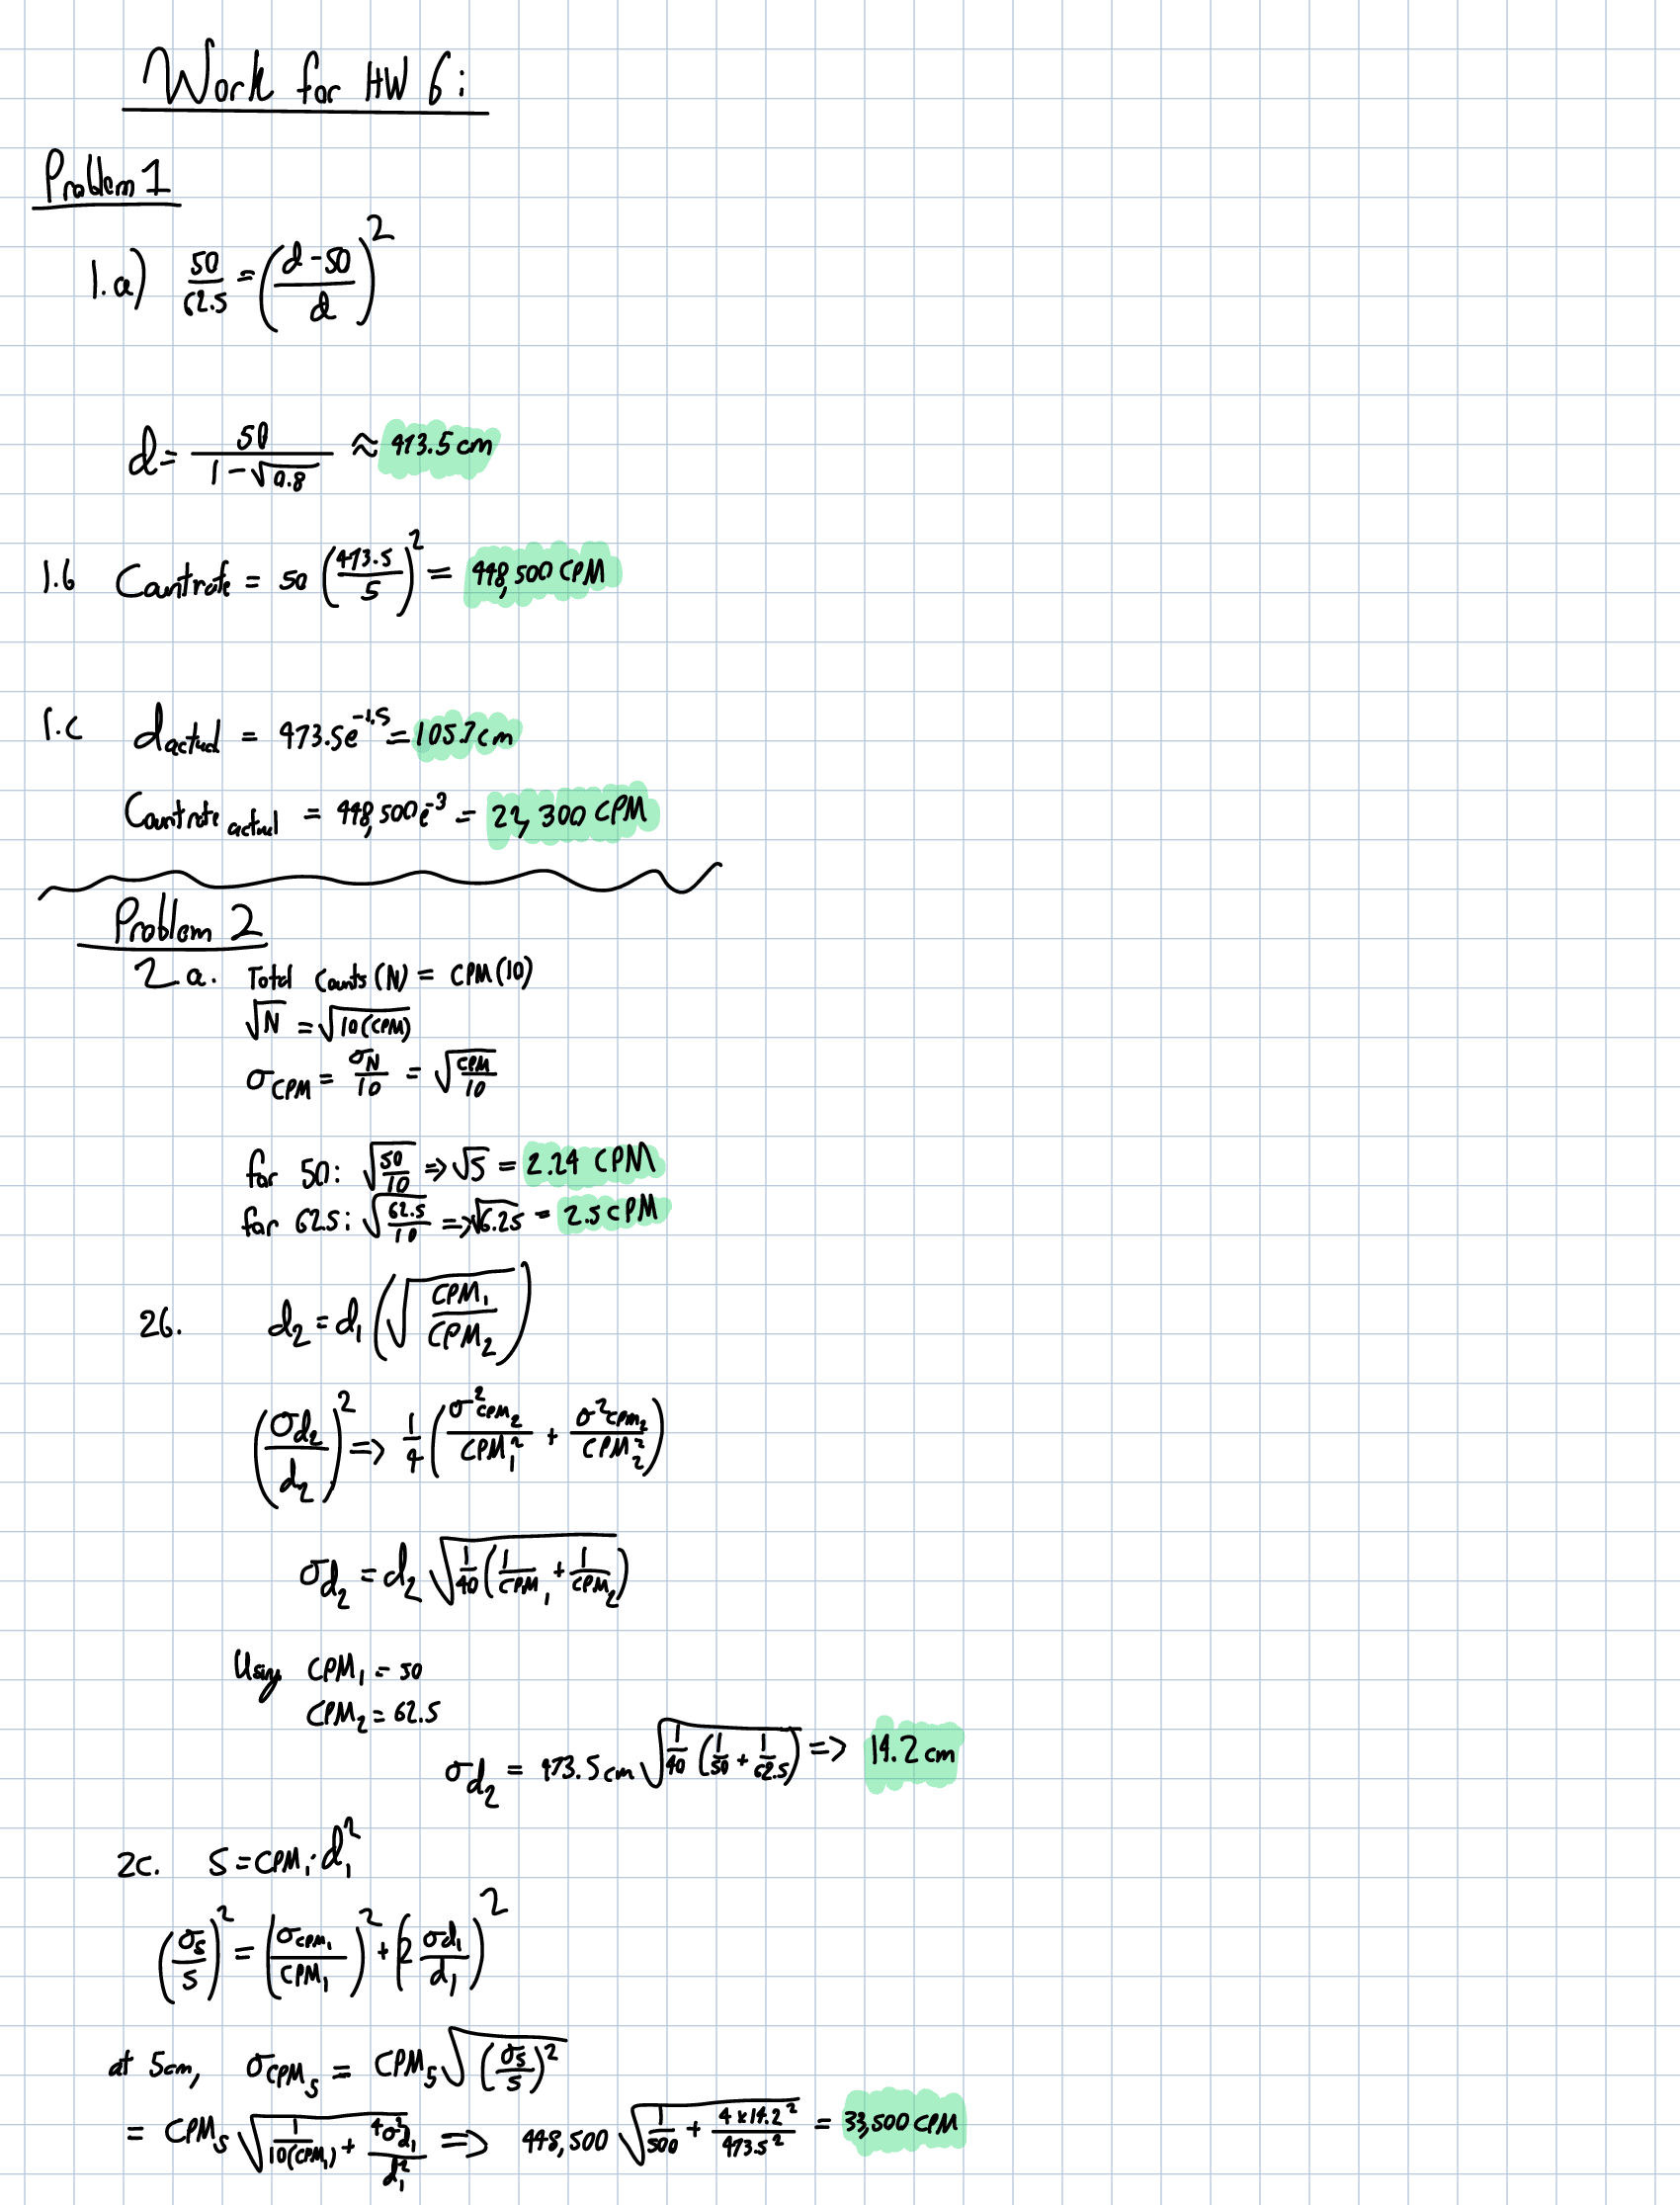 Work for HW 6:
Problem 1
1.a) 50/62.5 = ((d - 50)/d)^2
d = 50/(1 - √0.8) ≈ 473.5 cm
1.b Countrate = 50 (473.5/5)^2 = 448,500 CPM
1.c d_actual = 473.5e^-1.5 = 105.7 cm
Countrate_actual = 448,500e^-3 = 22,300 CPM
Problem 2
2a. Total Counts (N) = CPM(10)
√N = √(10(CPM))
σ_CPM = σ_N/10 = √(CPM/10)
for 50: √(50/10) => √5 = 2.24 CPM
for 62.5: √(62.5/10) => √6.25 = 2.5 CPM
2b. d_2 = d_1 (√(CPM_1/CPM_2))
(σ_d_2/d_2)^2 => 1/4 (σ^2_CPM_2/CPM_1^2 + σ^2_CPM_2/CPM_2^2)
σ_d_2 = d_2 √(1/40 (1/CPM_1 + 1/CPM_2))
Using CPM_1 = 50
CPM_2 = 62.5
σ_d_2 = 473.5 cm √(1/40 (1/50 + 1/62.5)) => 14.2 cm
2c. S = CPM_1 · d_1^2
(σ_S/S)^2 = (σ_CPM_1/CPM_1)^2 + (2 σ_d_1/d_1)^2
at 5cm, σ_CPM_5 = CPM_5 √((σ_S/S)^2)
= CPM_5 √(1/10(CPM_1) + 4σ^2_d_1/d_1^2) => 448,500 √(1/500 + 4 x 14.2^2/473.5^2) = 33,500 CPM